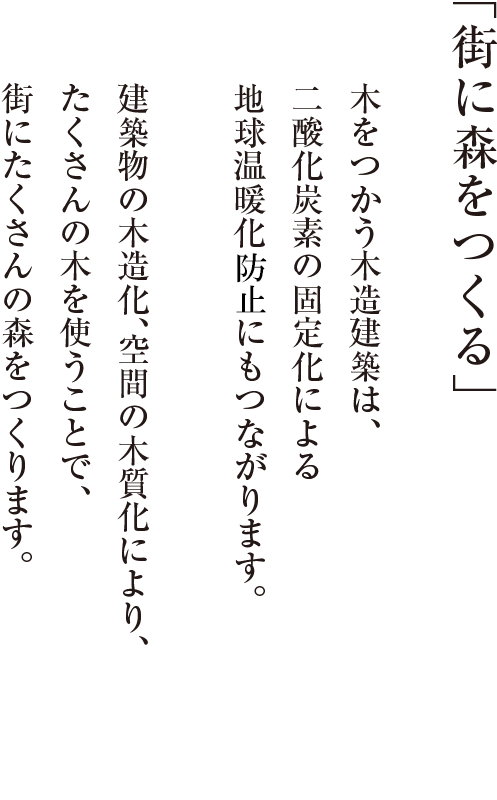 「街に森をつくる」
木をつかう木造建築は、
二酸化炭素の固定化による
地球温暖化防止にもつながります。
建築物の木造化、空間の木質化により、
たくさんの木を使うことで、
街にたくさんの森をつくります。